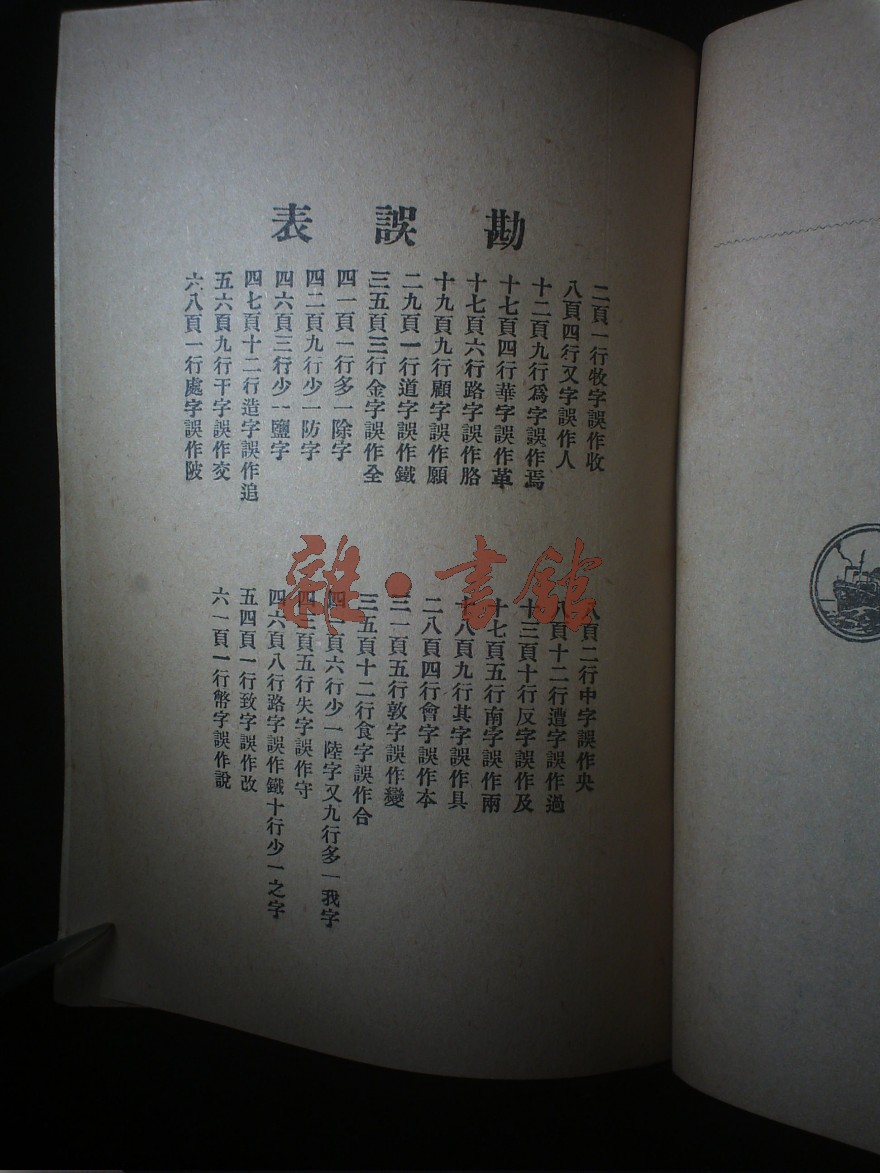 勘誤表
二頁一行牧字誤作收
八頁四行又字誤作人
十二頁九行爲字誤作焉
十七頁四行華字誤作革
十七頁六行路字誤作胳
十九頁九行顧字誤作願
二九頁一行道字誤作鐵
三五頁三行金字誤作全
四一頁一行多一除字
四二頁九行少一防字
四六頁三行少一鹽字
四七頁十二行造字誤作追
五六頁九行干字誤作交
六八頁一行處字誤作陂
八頁二行中字誤作央
八頁十二行遭字誤作過
十三頁十行反字誤作及
十七頁五行南字誤作兩
十八頁九行其字誤作具
二八頁四行會字誤作本
三一頁五行敦字誤作變
三五頁十二行食字誤作合
頁六行少一陸字又九行多一我字
頁五行失字誤作守
四六頁八行路字誤作鐵十行少一之字
五四頁一行致字誤作改
六一頁一行幣字誤作說
雜·書館